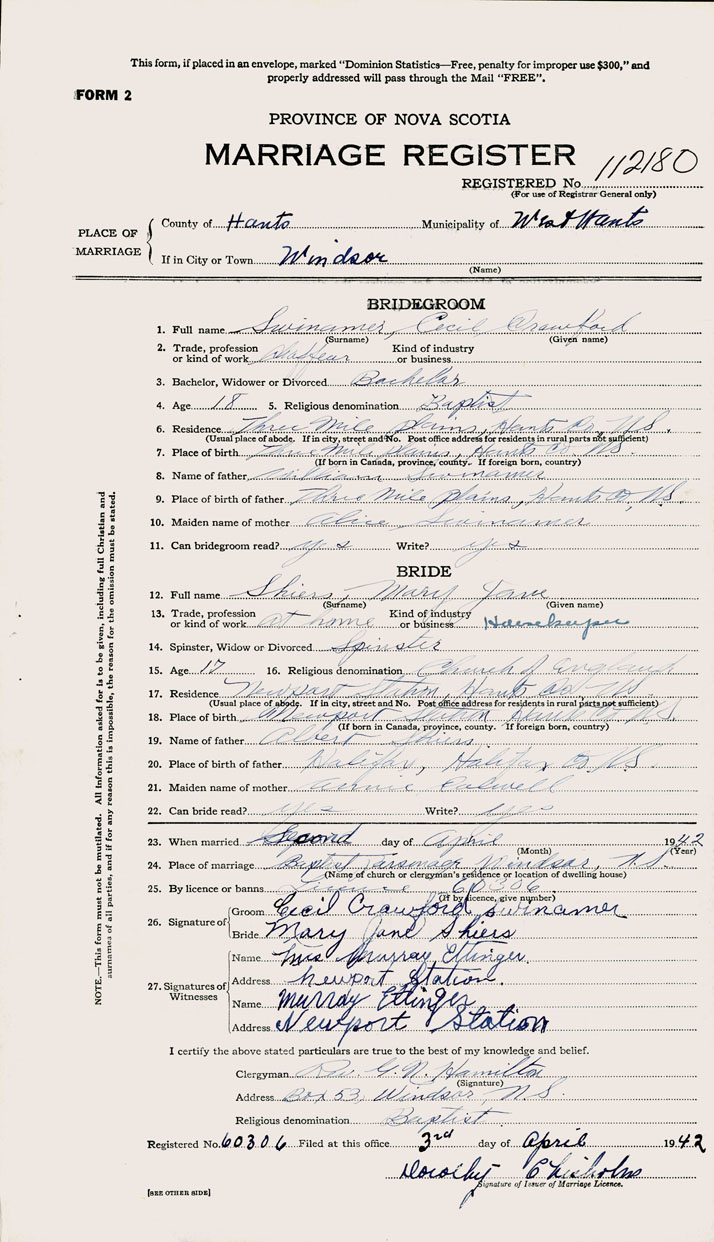 This form, if placed in an envelope, marked "Dominion Statistics—Free, penalty for improper use $300," and
properly addressed will pass through the Mail "FREE".
FORM 2
PROVINCE OF NOVA SCOTIA
MARRIAGE REGISTER
REGISTERED No. 112180
(For use of Registrar General only)
PLACE OF MARRIAGE
County of Hants Municipality of West Hants
If in City or Town Windsor
(Name)
BRIDEGROOM
1. Full name Swinamer, Cecil Crawford
(Surname) (Given name)
2. Trade, profession or kind of work Kind of industry or business
3. Bachelor, Widower or Divorced Bachelor
4. Age 18 5. Religious denomination Baptist
6. Residence Three Mile Plains, Hants Co. N.S.
(Usual place of abode. If in city, street and No. Post office address for residents in rural parts not sufficient)
7. Place of birth Three Mile Plains, Hants Co N.S.
(If born in Canada, province, county. If foreign born, country)
8. Name of father William Swinamer
9. Place of birth of father Three Mile Plains, Hants Co, N.S.
10. Maiden name of mother Alice Swinamer
11. Can bridegroom read? yes Write? yes
BRIDE
12. Full name Shiers, Mary Jane
(Surname) (Given name)
13. Trade, profession or kind of work at home Kind of industry or business Housekeeper
14. Spinster, Widow or Divorced Spinster
15. Age 17 16. Religious denomination Church of England
17. Residence Newport Station, Hants Co. N.S
(Usual place of abode. If in city, street and No. Post office address for residents in rural parts not sufficient)
18. Place of birth Newport Station Hants Co N.S.
(If born in Canada, province, county. If foreign born, country)
19. Name of father Albert Shiers
20. Place of birth of father Halifax, Halifax Co. N.S.
21. Maiden name of mother Annie
22. Can bride read? yes Write? yes
23. When married Second day of April 1942
(Month) (Year)
24. Place of marriage Baptist Parsonage Windsor, N.S.
(Name of church or clergyman's residence or location of dwelling house)
25. By licence or banns License 60306
(If by licence, give number)
26. Signature of Groom Cecil Crawford Swinamer
Bride Mary Jane Shiers
27. Signatures of Witnesses
Name Mrs Murray Ettinger
Address Newport Station.
Name Murray Ettinger
Address Newport Station
I certify the above stated particulars are true to the best of my knowledge and belief.
Clergyman Rev. G. N. Hamilton
(Signature)
Address Box 53, Windsor, N.S.
Religious denomination Baptist
Registered No. 60306 Filed at this office 3rd day of April 1942
Dorothy Chisholm
Signature of Issuer of Marriage Licence.
[SEE OTHER SIDE]
NOTE.—This form must not be mutilated. All Information asked for is to be given, including full Christian and
surnames of all parties, and if for any reason this is impossible, the reason for the omission must be stated.